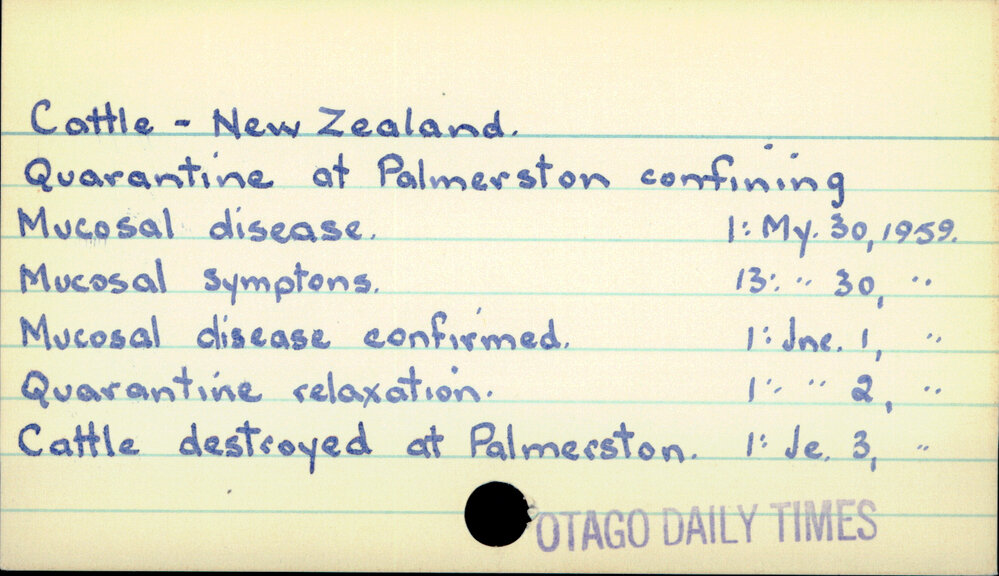 Cattle - New Zealand.
Quarantine at Palmerston confining
Mucosal disease. 1: My. 30, 1959.
Mucosal symptons. 13: " 30, "
Mucosal disease confirmed. 1: Jne. 1, "
Quarantine relaxation. 1: " 2, "
Cattle destroyed at Palmerston. 1: Je. 3, "
OTAGO DAILY TIMES